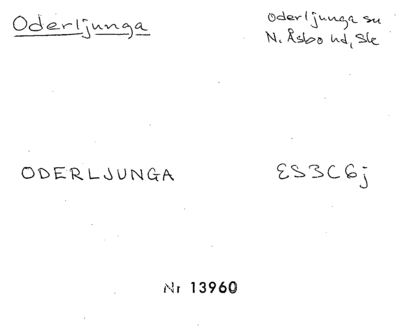 Oderljunga
Oderljunga sn
N. Åsbo hd, Sk
ODERLJUNGA
ES3C6j
Nr 13960